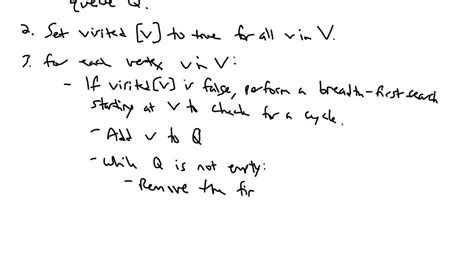 queue Q.
2. Set visited [v] to true for all v in V.
3. for each vertex v in V:
- If visited[v] is false, perform a breadth-first search
starting at v to check for a cycle.
- Add v to Q
- While Q is not empty:
- Remove the fir